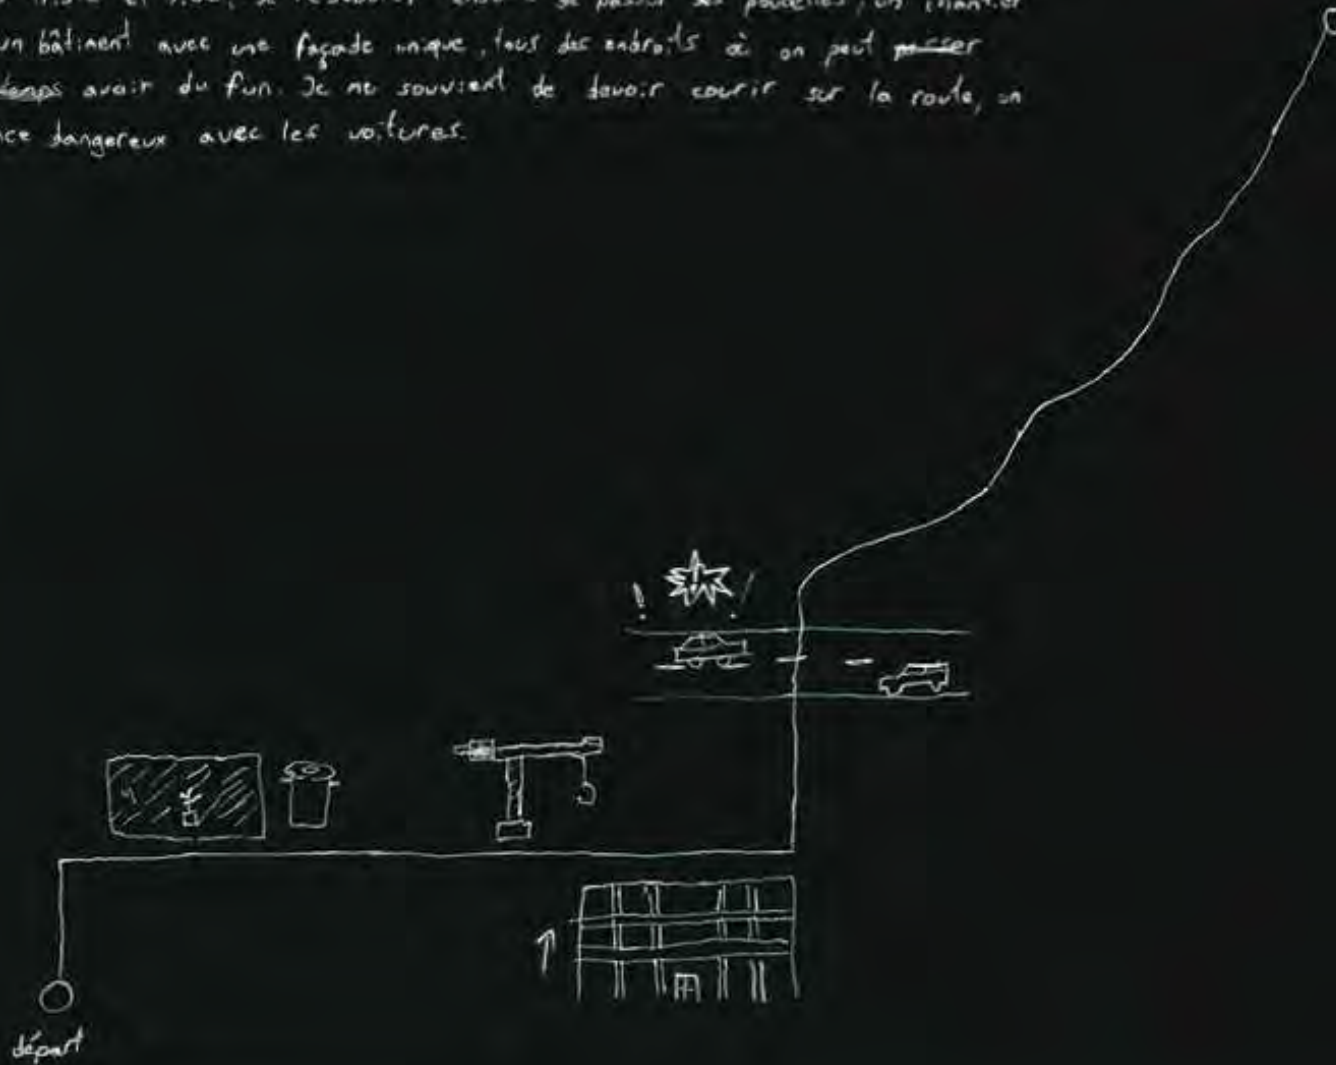 un bâtiment avec une façade unique, tous des endroits où on peut passer
temps avoir du fun. Je me souvient de devoir courir sur la route, un
dangereux avec les voitures.
! ! !
départ